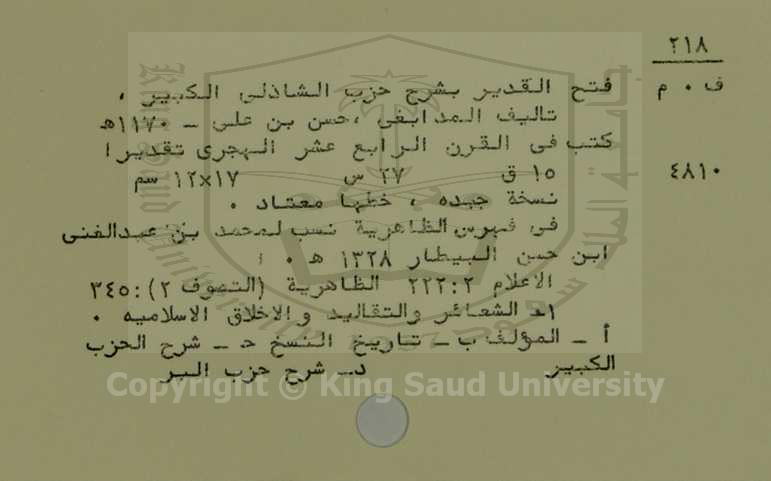 ٢١٨
ف . م فتح القدير بشرح حزب الشاذلى الكبير .
تاليف المدابغى ،حسن بن على - ١١٧٠ه
كتب فى القرن الرابع عشر الهجرى تقديرا
٤٨١٠ ١٥ ق ٢٧ س ١٧×١٢ سم
نسخة جيده ، خطها معتاد .
فى فهرس الظاهرية نسب لمحمد بن عبدالغنى
ابن حسن البيطار ١٣٢٨ ه .
الاعلام ٢:٢٢٢ الظاهرية (التصوف ٢):٣٤٥
١- الشعائر والتقاليد والاخلاق الاسلاميه .
أ - المؤلف ب - تاريخ النسخ ج - شرح الحزب
الكبير د- شرح حزب البر
Copyright © King Saud University